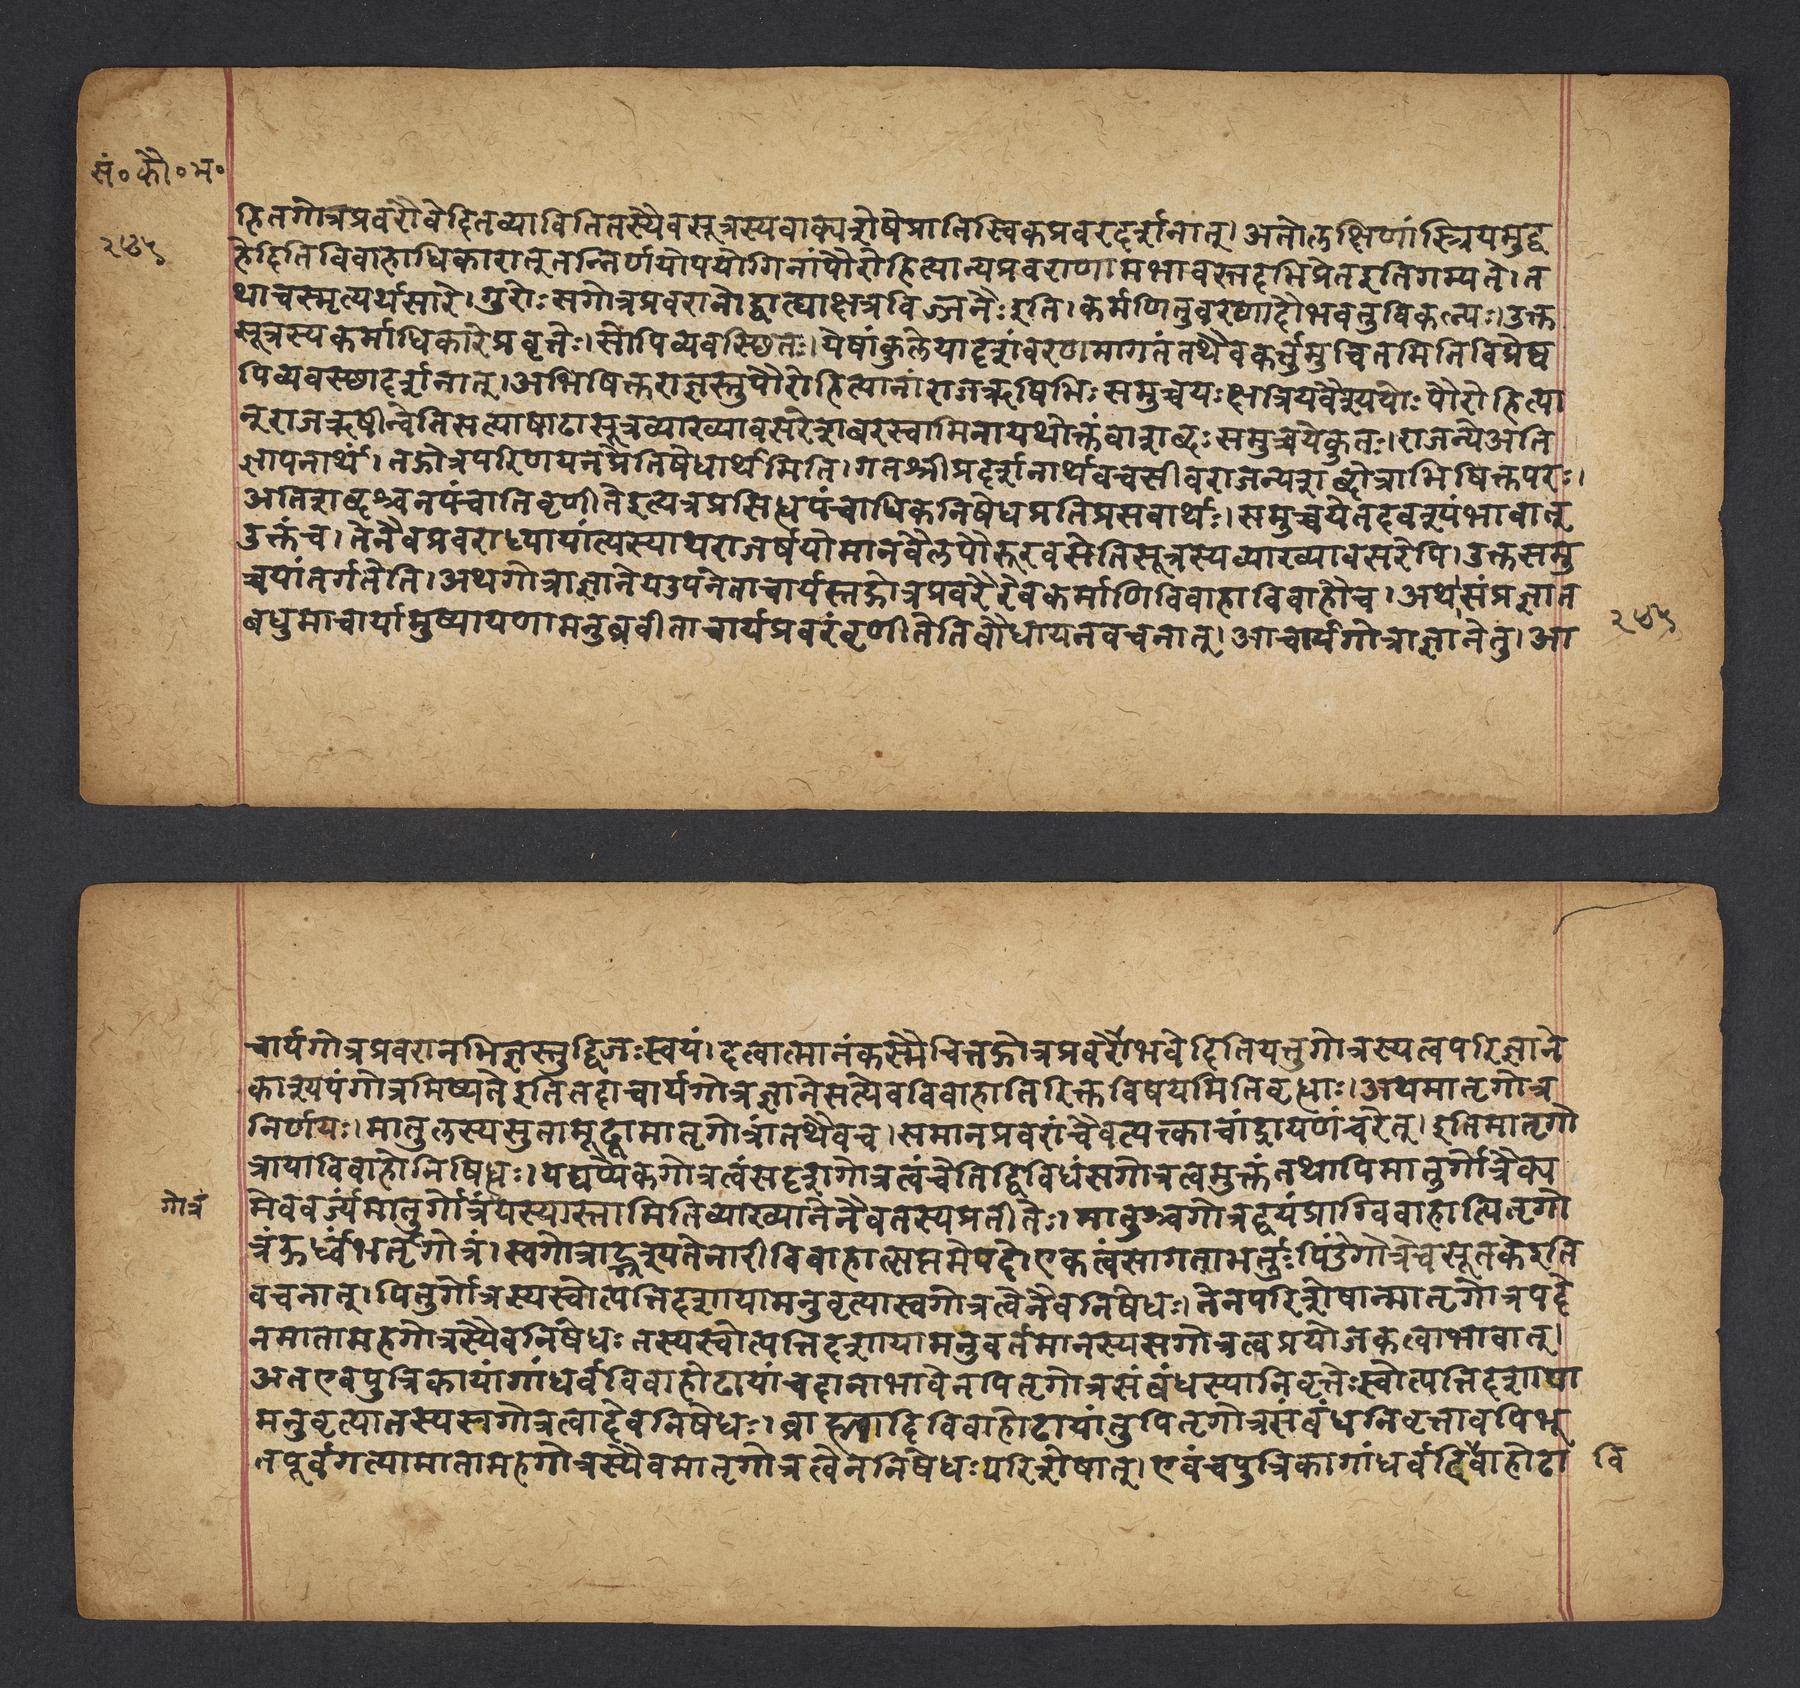 सं॰कौ॰म॰
२७५
हितगोत्रप्रवरौवेदितव्यावितितस्यैवसूत्रस्यवाक्यशेषेप्रातिस्विकप्रवरदर्शनात्। अतोलक्षिणांस्त्रियमुद्व
हेदितिविवाहाधिकारात्तन्निर्णयोपयोगिनांपौरोहित्यान्यप्रवराणामभावस्तदभिप्रेतइतिगम्यते। त
थाचस्मृत्यर्थसारे। गुरोःसगोत्रप्रवरानोद्वात्याक्षत्रविज्जनैःइति। कर्मणितुवरणादौभवतुविकल्पः। उक्त
सूत्रस्यकर्माधिकारेप्रवृत्तेः। सोपिव्यवस्थितः। येषांकुलेयादृशंवरणमागतंतथैवकर्त्तुमुचितमितिविप्रेष्व
पिव्यवस्थादर्शनात्। अभिषिक्तराज्ञस्तुपौरोहित्यानांराजऋषिभिःसमुच्चयःक्षत्रियवैश्ययोःपौरोहित्या
न्राजऋषीन्वेतिसत्याषाढासूत्रव्याख्यावसरेशबरस्वामिनायथोक्तंवाशब्दःसमुच्चयेकुतः। राजन्येअति
ज्ञापनार्थं। तद्गोत्रपरिणयनप्रतिषेधार्थमिति। गतश्रीप्रदर्शनार्थवचसीवराजन्यशब्दोत्राभिषिक्तपरः।
अतिशब्दश्चनपंचातिवृणीतेइत्यत्रप्रसिध्पंचाधिकनिषेधप्रतिप्रसवार्थः। समुच्चयेतदवश्यंभावात्
उक्तंच। तेनैवप्रवराध्यायांत्यस्याथराजर्षयोमानवैलपौरूरवसेतिसूत्रस्यव्याख्यावसरेपि। उक्तसमु
च्चयांतर्गतेति। अथगोत्राज्ञानेयउपनेताचार्यस्तद्गोत्रप्रवरैरेवकर्माणिविवाहाविवाहौच। अथसंप्रज्ञात
बंधुमाचार्यामुष्यायणामनुब्रवीताचार्यप्रवरंवृणीतेतिबौधायनवचनात्। आचार्यगोत्राज्ञानेतु। आ
२७५
चार्यगोत्रप्रवरानभिज्ञस्तुद्विजःस्वयं। दत्वात्मानंकस्मैचित्तद्गोत्रप्रवरोभवेदितियत्तुगोत्रस्यत्वपरिज्ञाने
काश्यपंगोत्रमिष्यतेइतितदाचार्यगोत्रज्ञानेसत्येवविवाहातिरिक्तविषयमितिवृद्धाः। अथमातृगोत्र
निर्णयः। मातुलस्यसुतामूढ्वामातृगोत्रांतथैवच। समानप्रवरांचैवत्यक्त्काचांद्रायणंचरेत्। इतिमातृगो
त्रायाविवाहोनिषिद्धः। यद्यप्यैकगोत्रत्वंसदृशगोत्रत्वंचेतिद्विविधंसगोत्रत्वमुक्तंतथापिमातुर्गोत्रैक्य
गोत्रं
मेववर्ज्यंमातुर्गोत्रंयस्यास्तामितिव्याख्यानेनैवतस्यप्रतीतेः। मातुश्चगोत्रद्वयंप्राग्विवाहात्पितृगो
त्रंऊर्ध्वंभर्तृगोत्रं। स्वगोत्राद्भ्रश्यतेनारीविवाहात्सप्तमेपदे। एकत्वंसागताभर्त्तुःपिंडेगोत्रेचसूतकेइति
वचनात्। पितुर्गोत्रस्यस्वोत्पत्तिदशायामनुवृत्यास्वगोत्रत्वेनैवनिषेधः। तेनपरिशेषान्मातृगोत्रपदे
नमातामहगोत्रस्यैवनिषेधःतस्यस्वोत्पत्तिदशायामनुवर्तमानस्यसगोत्रत्वप्रयोजकत्वाभावात्।
अतएवपुत्रिकायांगांधर्वविवाहोढायांचदानाभावेनपितृगोत्रसंबंधस्यानिवृत्तेःस्वोत्पत्तिदशाया
मनुवृत्यातस्यस्वगोत्रत्वादेवनिषेधः। ब्राह्म्यादिविवाहोढायांतुपितृगोत्रसंबंधनिवृत्तावपिभू
तपूर्वगत्यामातामहगोत्रस्यैवमातृगोत्रत्वेननिषेधःपरिशेषात्। एवंचपुत्रिकागांधर्वादिर्वाहोढा
वि